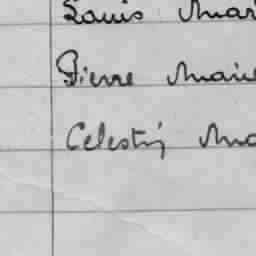 Louis Mar
Pierre Marie
Célestin Ma